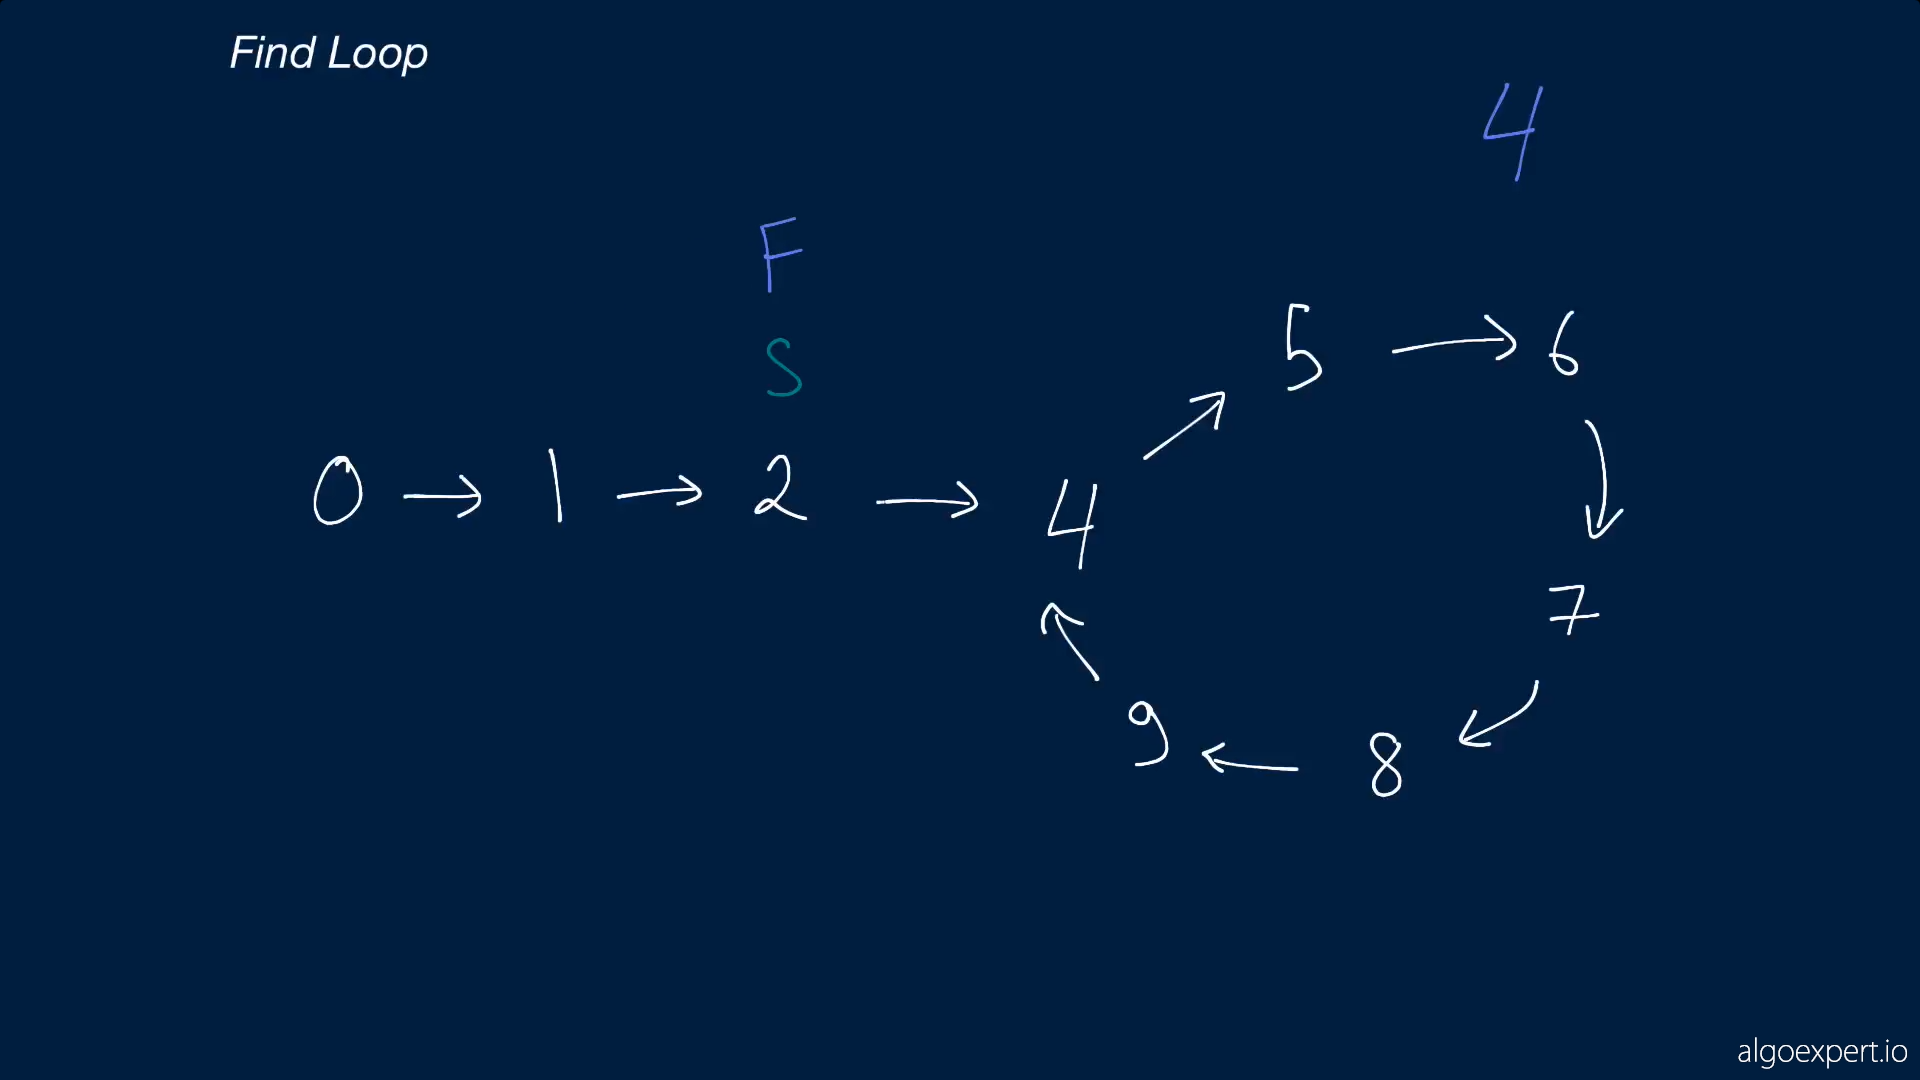 Find Loop
4
F
S
5 → 6
0 → 1 → 2 → 4
7
9 ← 8
algoexpert.io